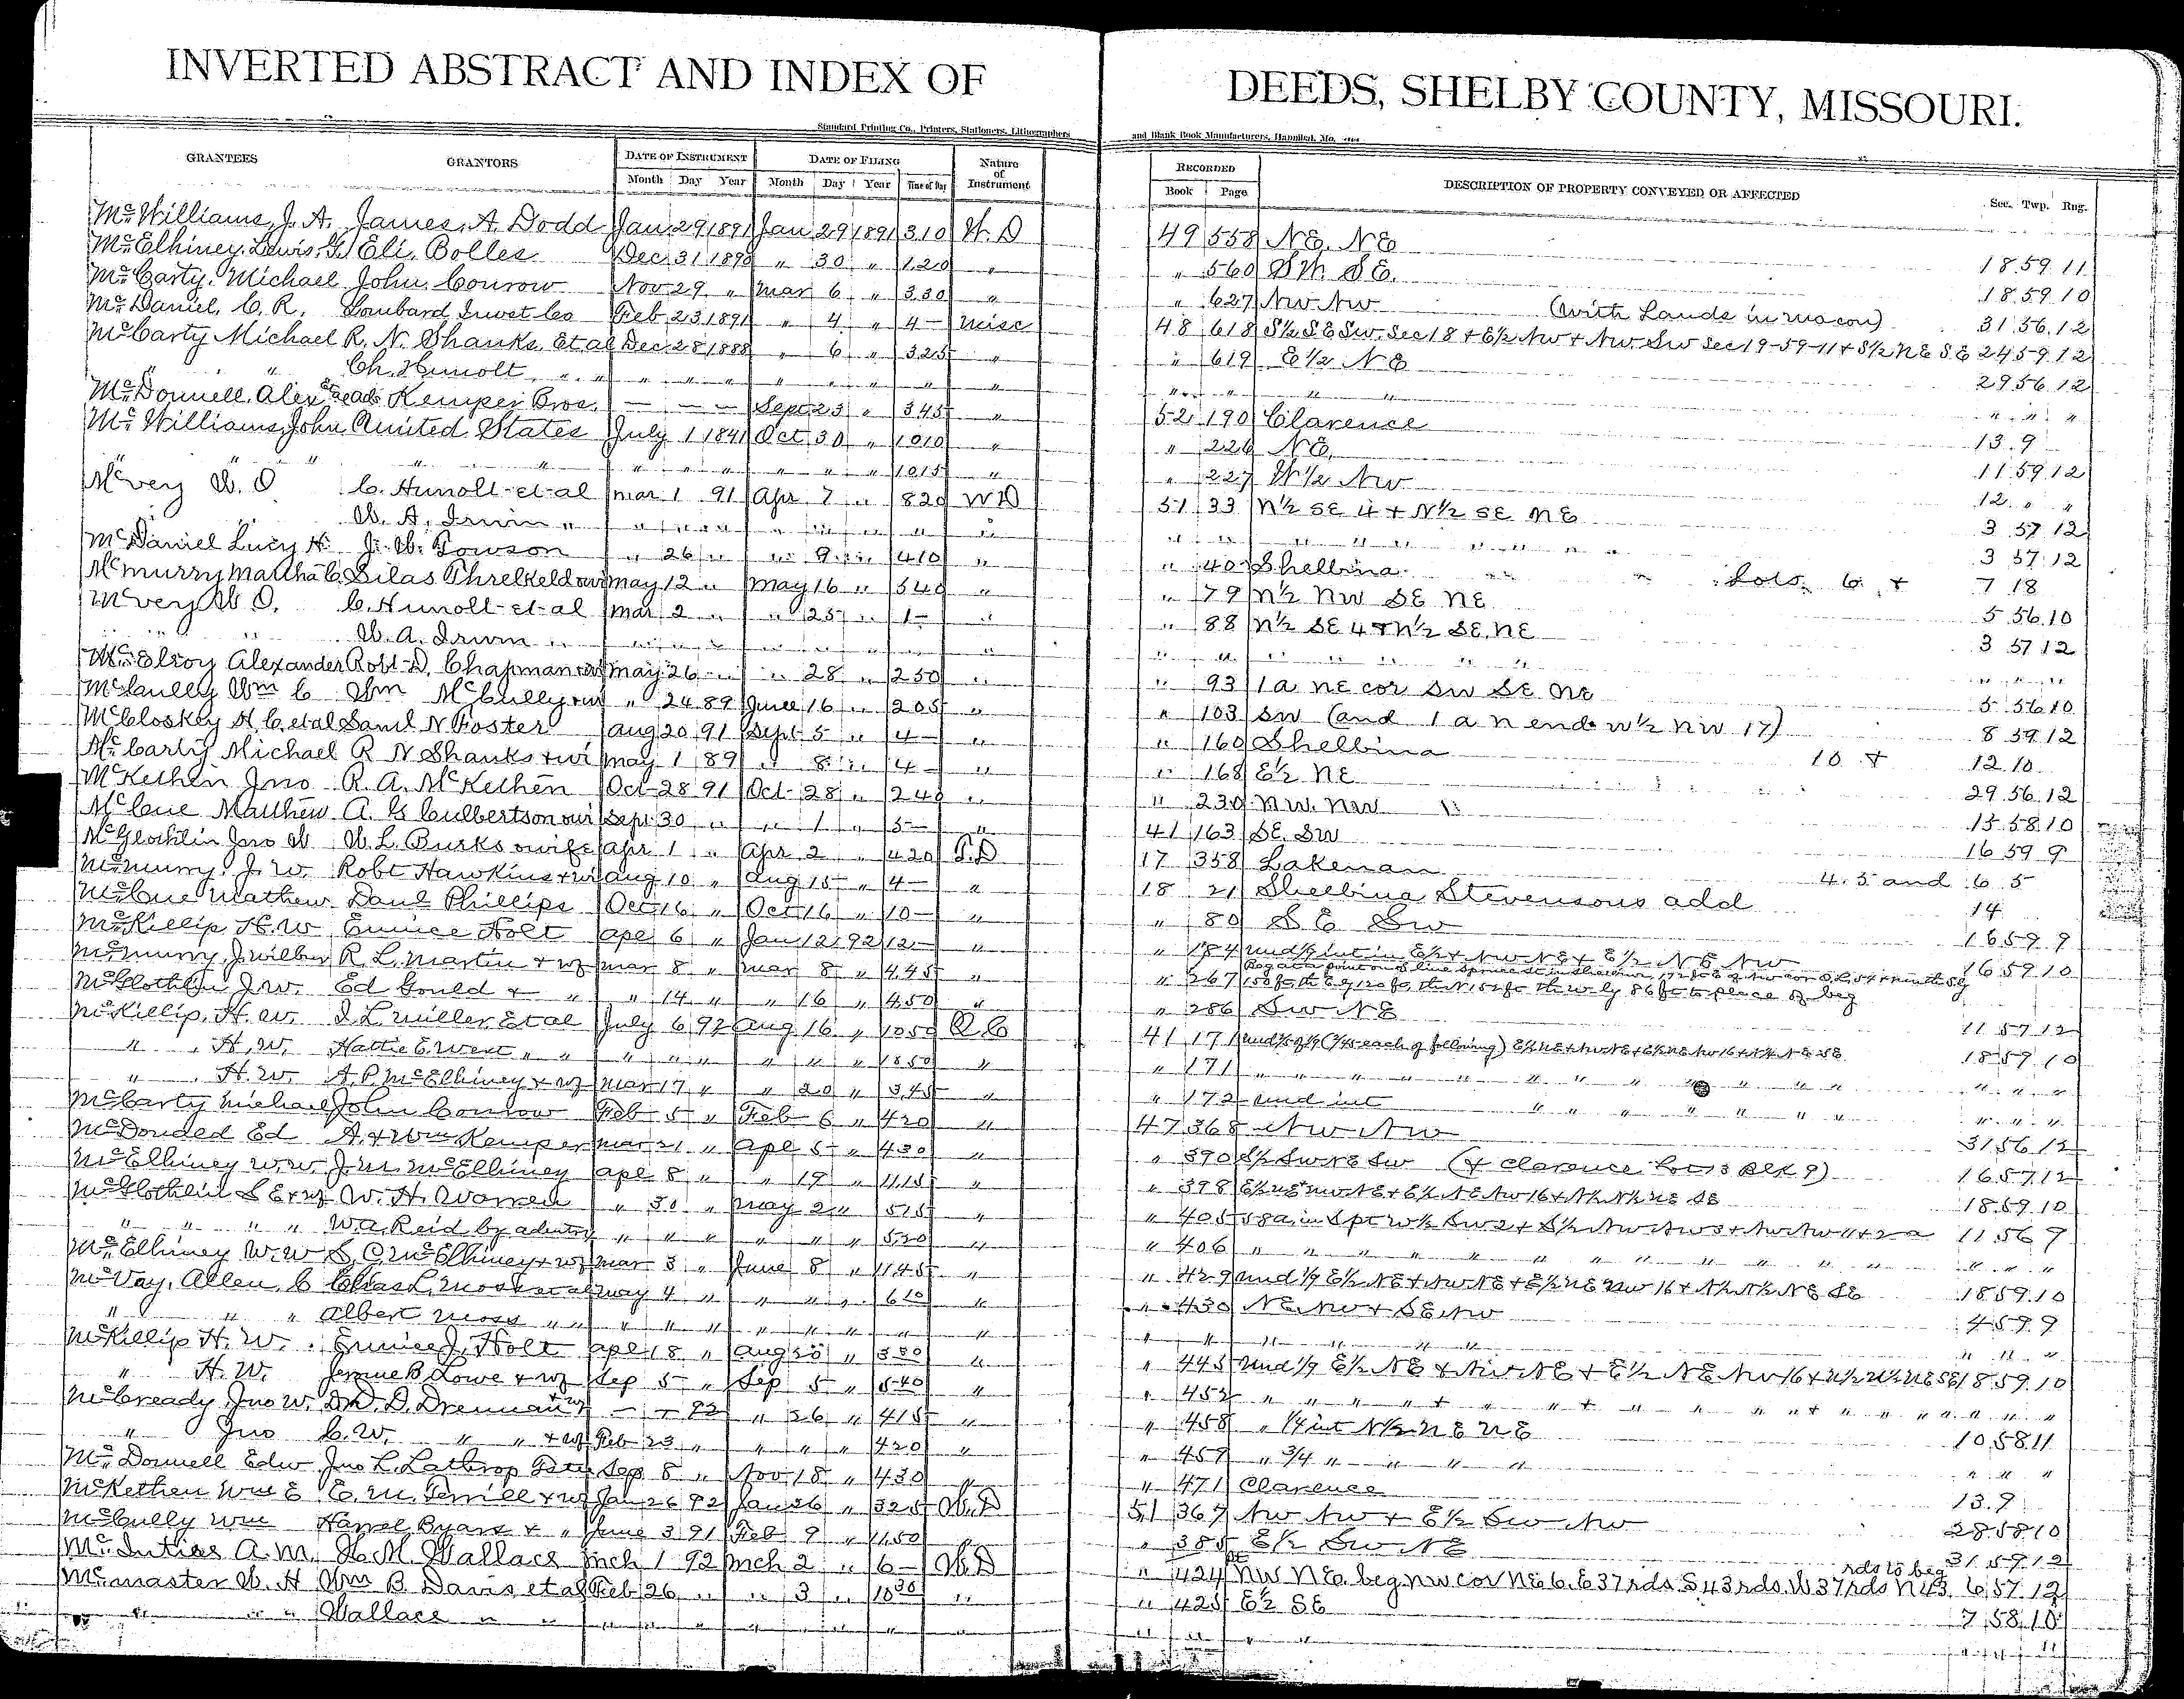 INVERTED ABSTRACT AND INDEX OF DEEDS, SHELBY COUNTY, MISSOURI.
Standard Printing Co., Printers, Stationers, Lithographers and Blank Book Manufacturers, Hannibal, Mo.
GRANTEES GRANTORS DATE OF INSTRUMENT DATE OF FILING Nature of Instrument RECORDED DESCRIPTION OF PROPERTY CONVEYED OR AFFECTED Sec. Twp. Rng.
Month Day Year Month Day Year Time of Day Book Page
McWilliams, J. A. James, A. Dodd Jan 29 1891 Jan 29 1891 310 W. D 49 558 NE. NE 18 59 11
McElhiney, Lewis, G Eli, Bolles Dec 31 1890 " 30 " 120 " " 560 SW SE. 18 59 10
McCarty, Michael John, Conrow Nov 29 " Mar 6 " 330 " " 627 NW NW (with Lands in Macon) 31 56 12
McDaniel, C. R. Lombard Invst Co Feb 23 1891 " 4 " 4 — Misc 48 618 S½ SE SW. Sec 18 + E½ NW + NW SW Sec 19-59-11 + S½ NE SE 24 59 12
McCarty Michael R. N. Shanks et al Dec 28 1888 " 6 " 325 " " 619 E½ NE 29 56 12
" " Ch. Hunolt " " " " " " " " " " " " " " " "
McDonnell, Alex Kemper Bros. — — — Sept 23 " 345 " 52 190 Clarence 13 . 9
McWilliams, John A United States July 1 1841 Oct 30 " 1010 " " 226 NE. 11 59 12
" " " " " " " " " " 1015 " " 227 W½ NW 12 " "
McVey W. O C. Hunolt et al Mar 1 91 Apr 7 " 820 WD 51 33 N½ SE 4 + N½ SE NE 3 57 12
W. A. Irwin " " " " " " " " " " " " " 3 57 12
McDaniel Lucy H J. W. Towson " 26 " " 9 " 410 " " 40 Shelbina Lots 6 + 7 18
McMurry Martha C. Silas Threlkeld & wi May 12 " May 16 " 540 " " 79 N½ NW SE NE 5 56 10
McVey W O. C. Hunolt et al Mar 2 " " 25 " 1 — " " 88 N½ SE 4 + N½ SE, NE 3 57 12
" " W. A. Irwin " " " " " " " " " " " " " " " "
McElroy Alexander Robt D. Chapman & wi May 26 " " 28 " 250 " " 93 1 a NE cor SW SE NE 5 56 10
McCully Wm C Wm McCully & wi " 24 89 June 16 " 205 " " 103 SW (and 1 a N end W½ NW 17) 8 59 12
McCloskey H C et al Saml N Foster Aug 20 91 Sept 5 " 4 — " " 160 Shelbina 10 + 12 10
McCarty Michael R N Shanks & wi May 1 89 " 8 " 4 — " " 168 E½ NE 29 56 12
McKethen Jno R. A. McKethen Oct 28 91 Oct 28 " 240 " " 230 NW. NW 15 58 10
McCue Matthew A. G Culbertson & wi Sept 30 " " 1 " 5 — " 41 163 SE. SW 16 59 9
McGlothlin Jno W W. L. Burks & wife Apr 1 " Apr 2 " 420 17 358 Lakenan 4. 5 and 6 5
McMurry, J. W. Robt Hawkins & wi Aug 10 " Aug 15 " 4 — " 18 21 Shelbina Stevensons add 14
McCue Mathew Danl Phillips Oct 16 " Oct 16 " 10 — " " 80 SE SW 16 59 9
McKillip H. W Eunice Holt Apl 6 " Jan 12 92 12 — " " 184 und ⅑ int in E½ + NW NE + E½ NE NW 16 59 10
McMurry, J Wilbur R. L. Martin & wf Mar 8 " Mar 8 " 445 " " 267
McGlothlin J. W. Ed Gould & " " 14 " " 16 " 450 " " 286 SW NE 11 57 12
McKillip, H. W. I L. Miller, et al July 6 92 Aug 16 " 1050 Q C 41 171 18 59 10
" " H. W. Hattie E. West " " " " " " " " 1050 " " 171 " " " " " " "
" " H. W. A. P. McElhiney & wf Mar 17 " " 20 " 345 " " 172 und int " " " " " "
McCarty Michael John Conrow Feb 5 " Feb 6 " 420 " 47 368 NW NW 31 56 12
McDonded Ed A. & Wm Kemper Mar 21 " Apl 5 " 430 " " 390 S½ SW NE SW (+ Clarence Lot 13 Blk 9) 16 57 12
McElhiney W. W. J. M. McElhiney Apl 8 " " 19 " 1115 " " 398 E½ NE NW NE + E½ NE NW 16 + N½ N½ NE SE 18 59 10
McGlothlin S E & wf W. H. Warren " 30 " May 2 " 515 " " 405 58 a, in S pt W½ SW 2 + S½ NW NW 3 + NW NW 11 + 2 a 11 56 9
" " " " W. A. Reid by adm " " " " " " 520 " " 406 " " " " " " " "
McElhiney W. W. S. O. McElhiney & wf Mar 3 " June 8 " 1145 " " 429 und ⅑ E½ NE + NW NE + E½ NE NW 16 + N½ N½ NE SE 18 59 10
McVay, Allen, C Chas L. Moss et al May 4 " " " " 610 " " 430 NE. NW + SE NW 4 59 9
" " " Albert Moss " " " " " " " " " " " " " " " "
McKillip H. W. Eunice J. Holt Apl 18 " Aug 23 " 330 " " 445 und ⅑ E½ NE + NW NE + E½ NE NW 16 + N½ N½ NE SE 18 59 10
" H. W. Jennie B Lowe & wf Sep 5 " Sep 5 " 540 " " 452 " " " " " " " "
McCready Jno W. D. D. Drennan & wf — — 92 " 26 " 415 " " 458 " ¼ int N½ NE NE 10 58 11
" Jno C. W. " " & wf Feb 23 " " " " 420 " " 459 " ¾ " " " " " " "
McDonnell Edw Jno L. Lathrop Sep 8 " Nov 18 " 430 " " 471 Clarence 13 . 9
McKethen Wm E E. M. Terrill & wf Jan 26 92 Jan 26 " 325 W. D 51 367 NW NW + E½ SW NW 28 58 10
McCully Wm Harvel Byars & " June 3 91 Feb 9 " 1150 " 385 E½ SW NE 31 59 12
McIntire A. M. H. M. Wallace Mch 1 92 Mch 2 " 6 — W. D " 424 NW NE. beg NW cor NE 6. E 37 rds. S 43 rds. W 37 rds N 43 rds to beg 6 57 12
McMaster W. H Wm B. Davis et al Feb 26 " " 3 " 1030 " " 425 E½ SE 7 58 10
" " " Wallace " " " " " " " " " " " " " " "